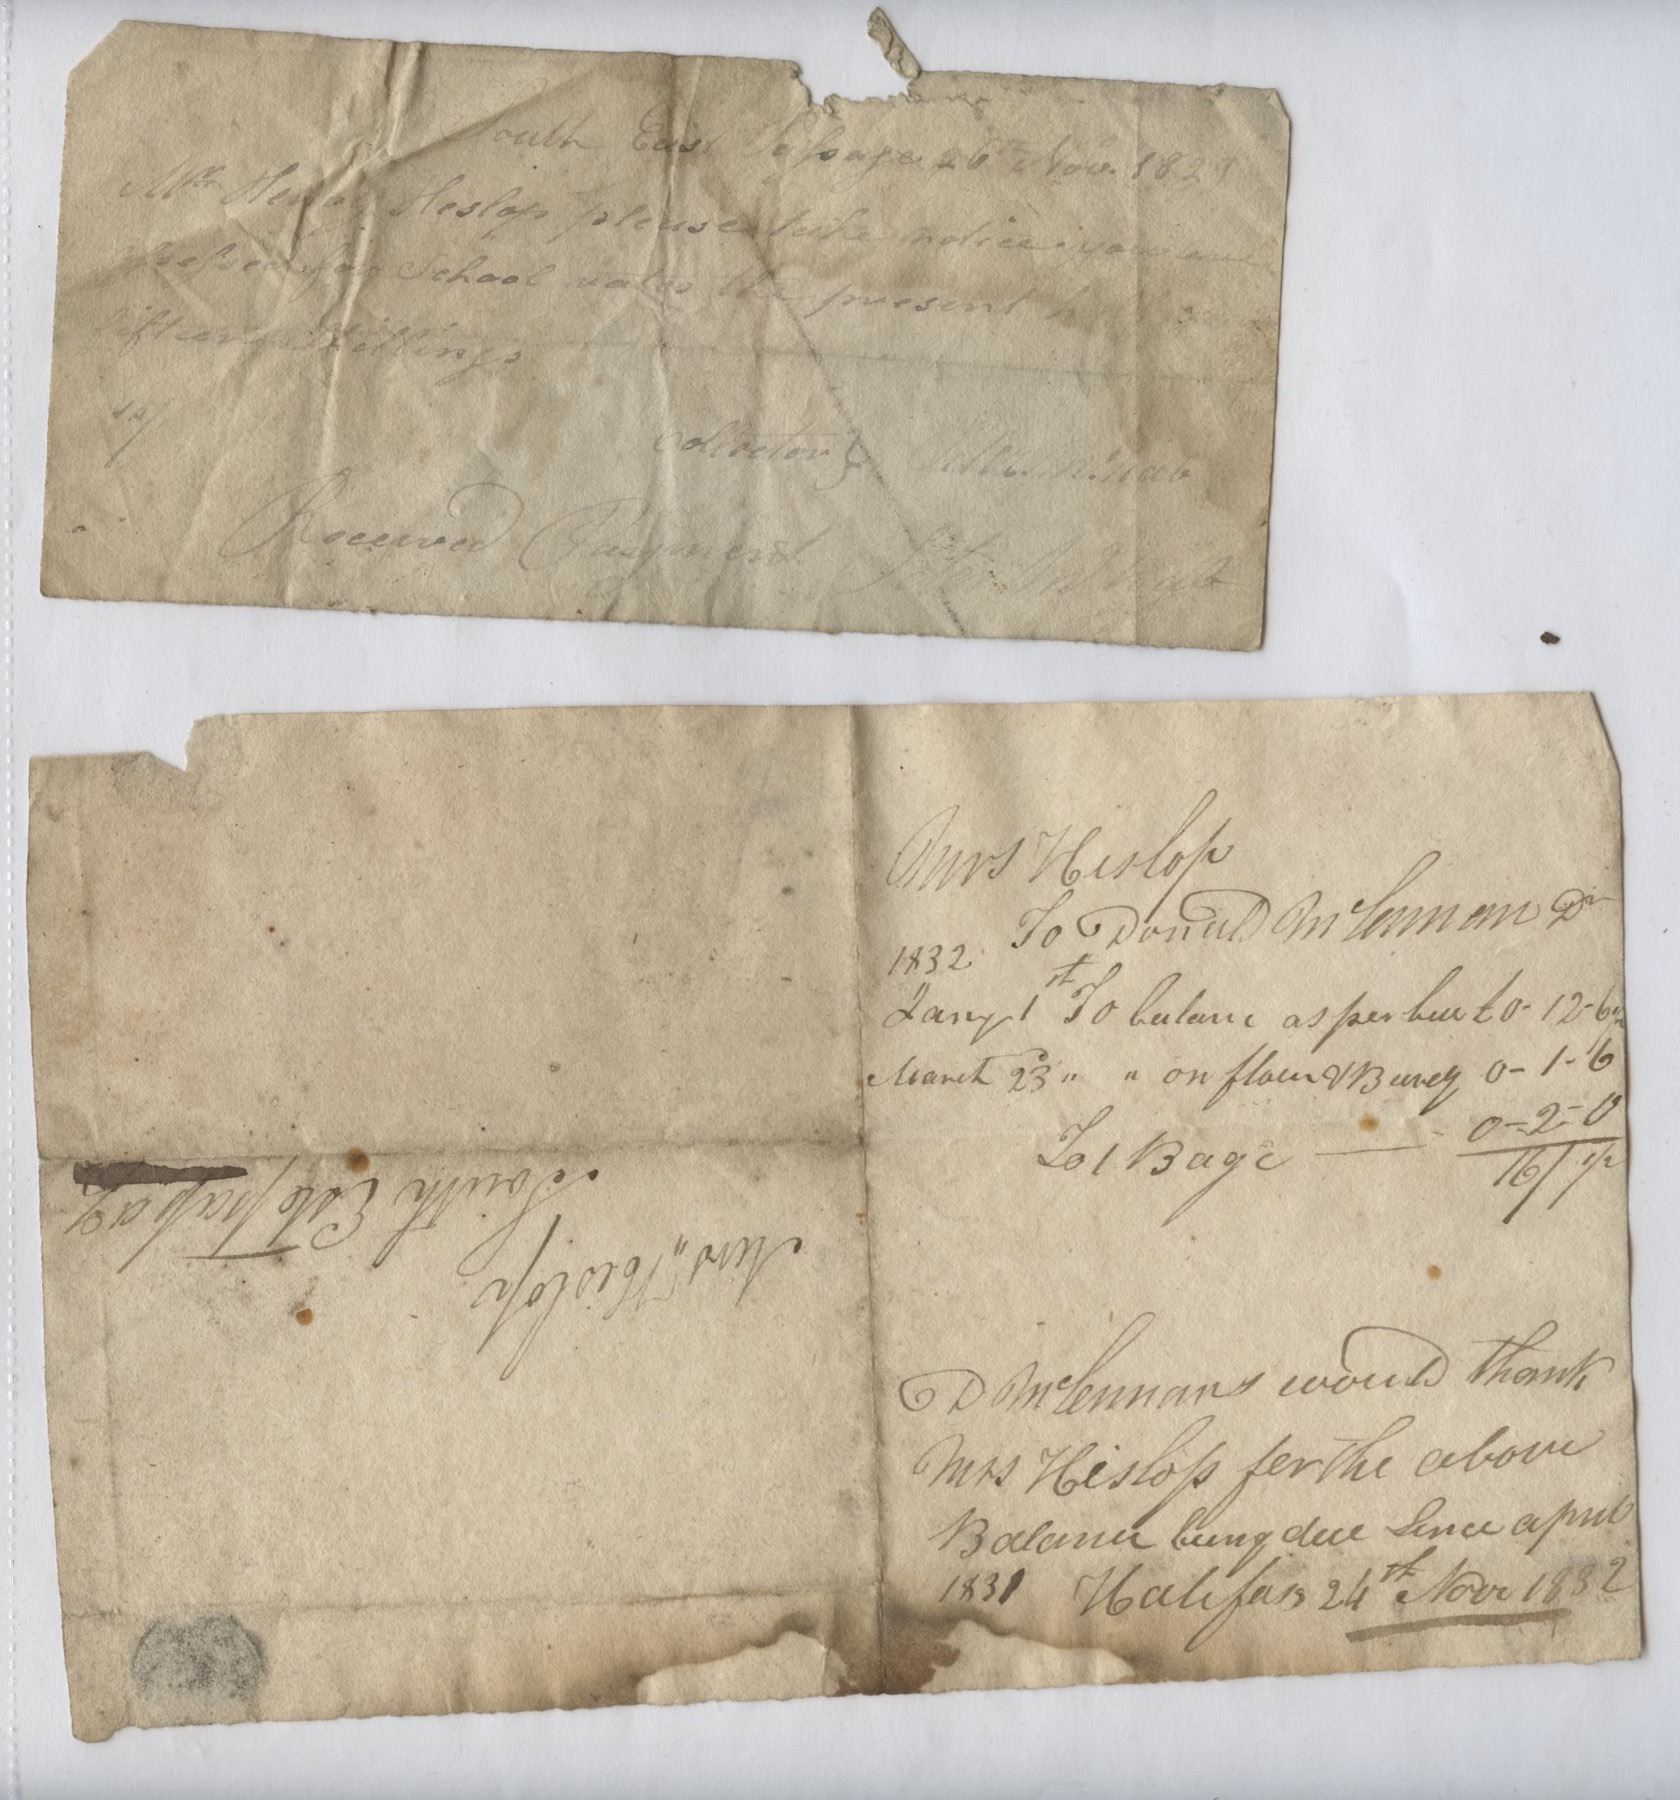 South East Passage 26th Nov. 1829
Mr Henry Heslop please take notice you are
for School rates the present
fifteen Shillings
15/
Collector }
Received Payment
Mrs Hislop
To Donald McLennan Dr
1832
Jany 1st To balanc as per bill £0-12-6
March 23 " " on flour & Barley 0-1-6
To 1 Bage — 0-2-0
16/
Mrs,, Hislop
South Estpasage
D McLennans would thank
Mrs Hislop for the above
Balance being due Since april
1831 Halifax 24th Novr 1832